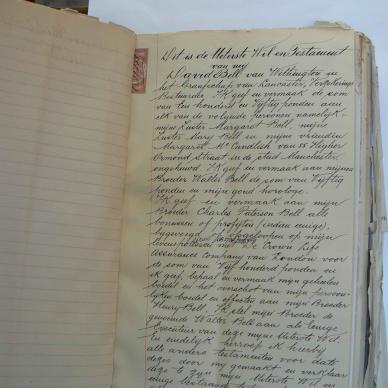 Dit is de Uiterste Wil en Testament
van my
David Bell van Withington in
het Graafschap van Lancaster, Verkoopings
Bestuurder. Ik geef en vermaak de som
van ten honderd en Vyftig ponden aan
elk van de volgende personen namelyk:-
myne Zuster Margaret Bell, myne
Zuster Mary Bell en myne vriendin
Margaret Mc Candlish van 58 Higher
Ormond Straat in de stad Manchester
ongehuwd. Ik geef en vermaak aan mynen
Broeder Walter Bell de som van Vyftig
ponden en myne goud horologe.
Ik geef en vermaak aan myne
Broeder Charles Paterson Bell alle
bonussen of profyten (indien eenige),
bygevoegd of opgeloopen op myne
levenspolis met De Crown Life
Assurance Company van London voor
de som van Vyf honderd ponden en
ik geef, bepaal en vermaak myn geheelen
boedel en het overschot van myne persoon-
lyken boedel en effecten aan myn Broeder
Henry Bell. Ik stel myne Broeder de
genoemde Walter Bell aan als eenige
Executeur van deze myne Uiterste Wil.
En eindelyk herroep ik hierby
alle andere testamenten voor date
dezes door my gemaakt en verklaar
deze te zyn myne Uiterste Wil en
eenige testament